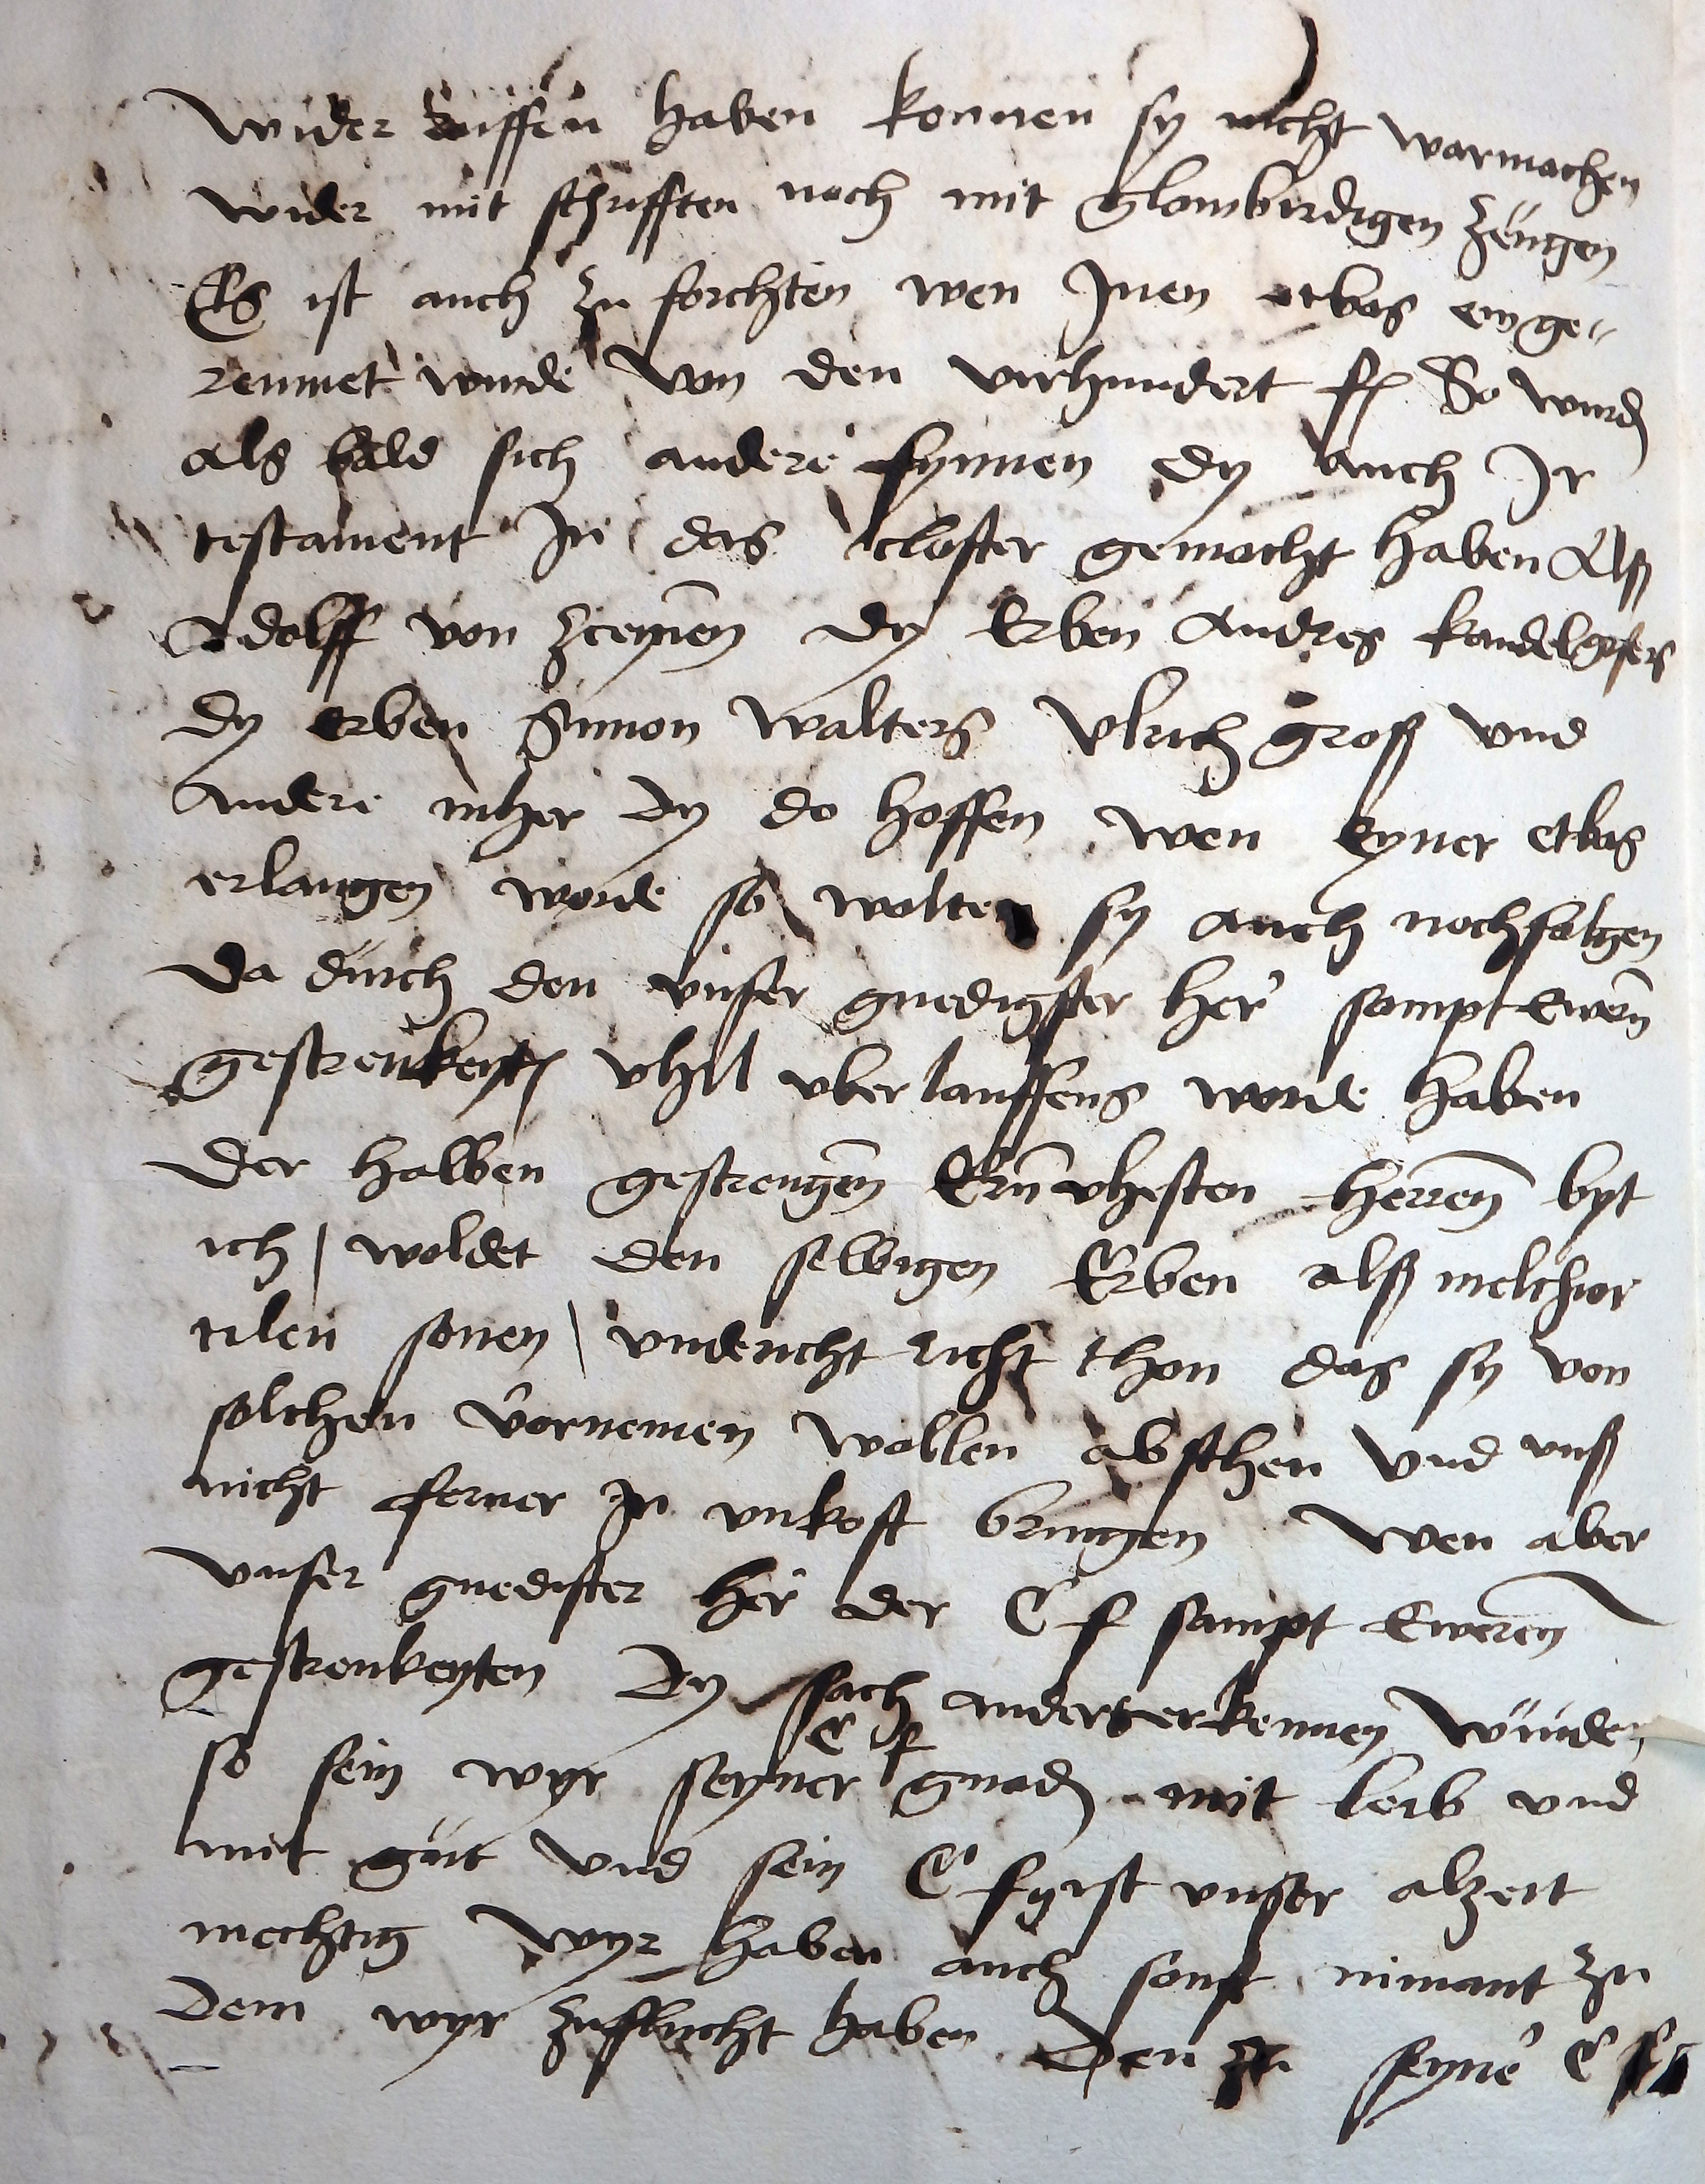 wider ruffen haben konnen sy nicht warmachen
wider mit schrifften noch mit glawbirdigen zeugen
Es ist auch zu forchten wen Inen etbas einge-
reumet wurde von den virhundert fl So wurd
als bald sich andere fynnen dy auch Ir
testament In das closter gemacht haben Alß
Adolff von dy Erben Andres kandelgisers
dy erben Simon Walters Vlrich groß vnd
andere mher dy do hoffen wen eyner etbas
erlangen worde so wolten sy auch nochfolgen
da durch den vnser gnedigster her sampt Ewern
gestrenkeyt vhil vberlauffens worde haben
Der halben gestrengen Ernvhesten herren byt
ich / woldet den selbigen Erben alß melchior
tilen sonen / vndericht thon das sy von
solchen vornemen wollen absthen vnd vnß
nicht ferner In vnkost bringen Wen aber
vnser gnedister her der C f sampt Eweren
gestrenkeyten dy sach anders erkennen wurden
so sein wyr seyner C f gnad mit leib vnd
mit gut vnd sein C fyrst vnser alzeit
mechtig wyr haben auch sonst nimant zu
dem wyr zuflucht haben den zu seyne C f